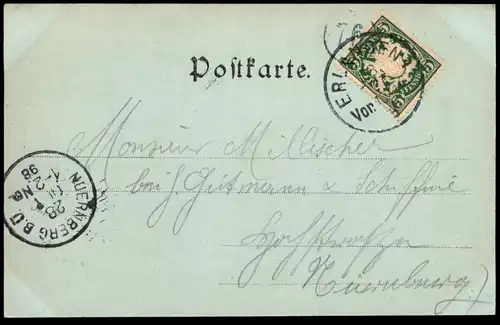 Postkarte.
ERL
Vor.
5 PFENNIG 5
NUERNBERG B.Ü.
28
Nm
1-2
98
Monsieur Millischer
bei Gutmann & Schiffrie
Nürnberg